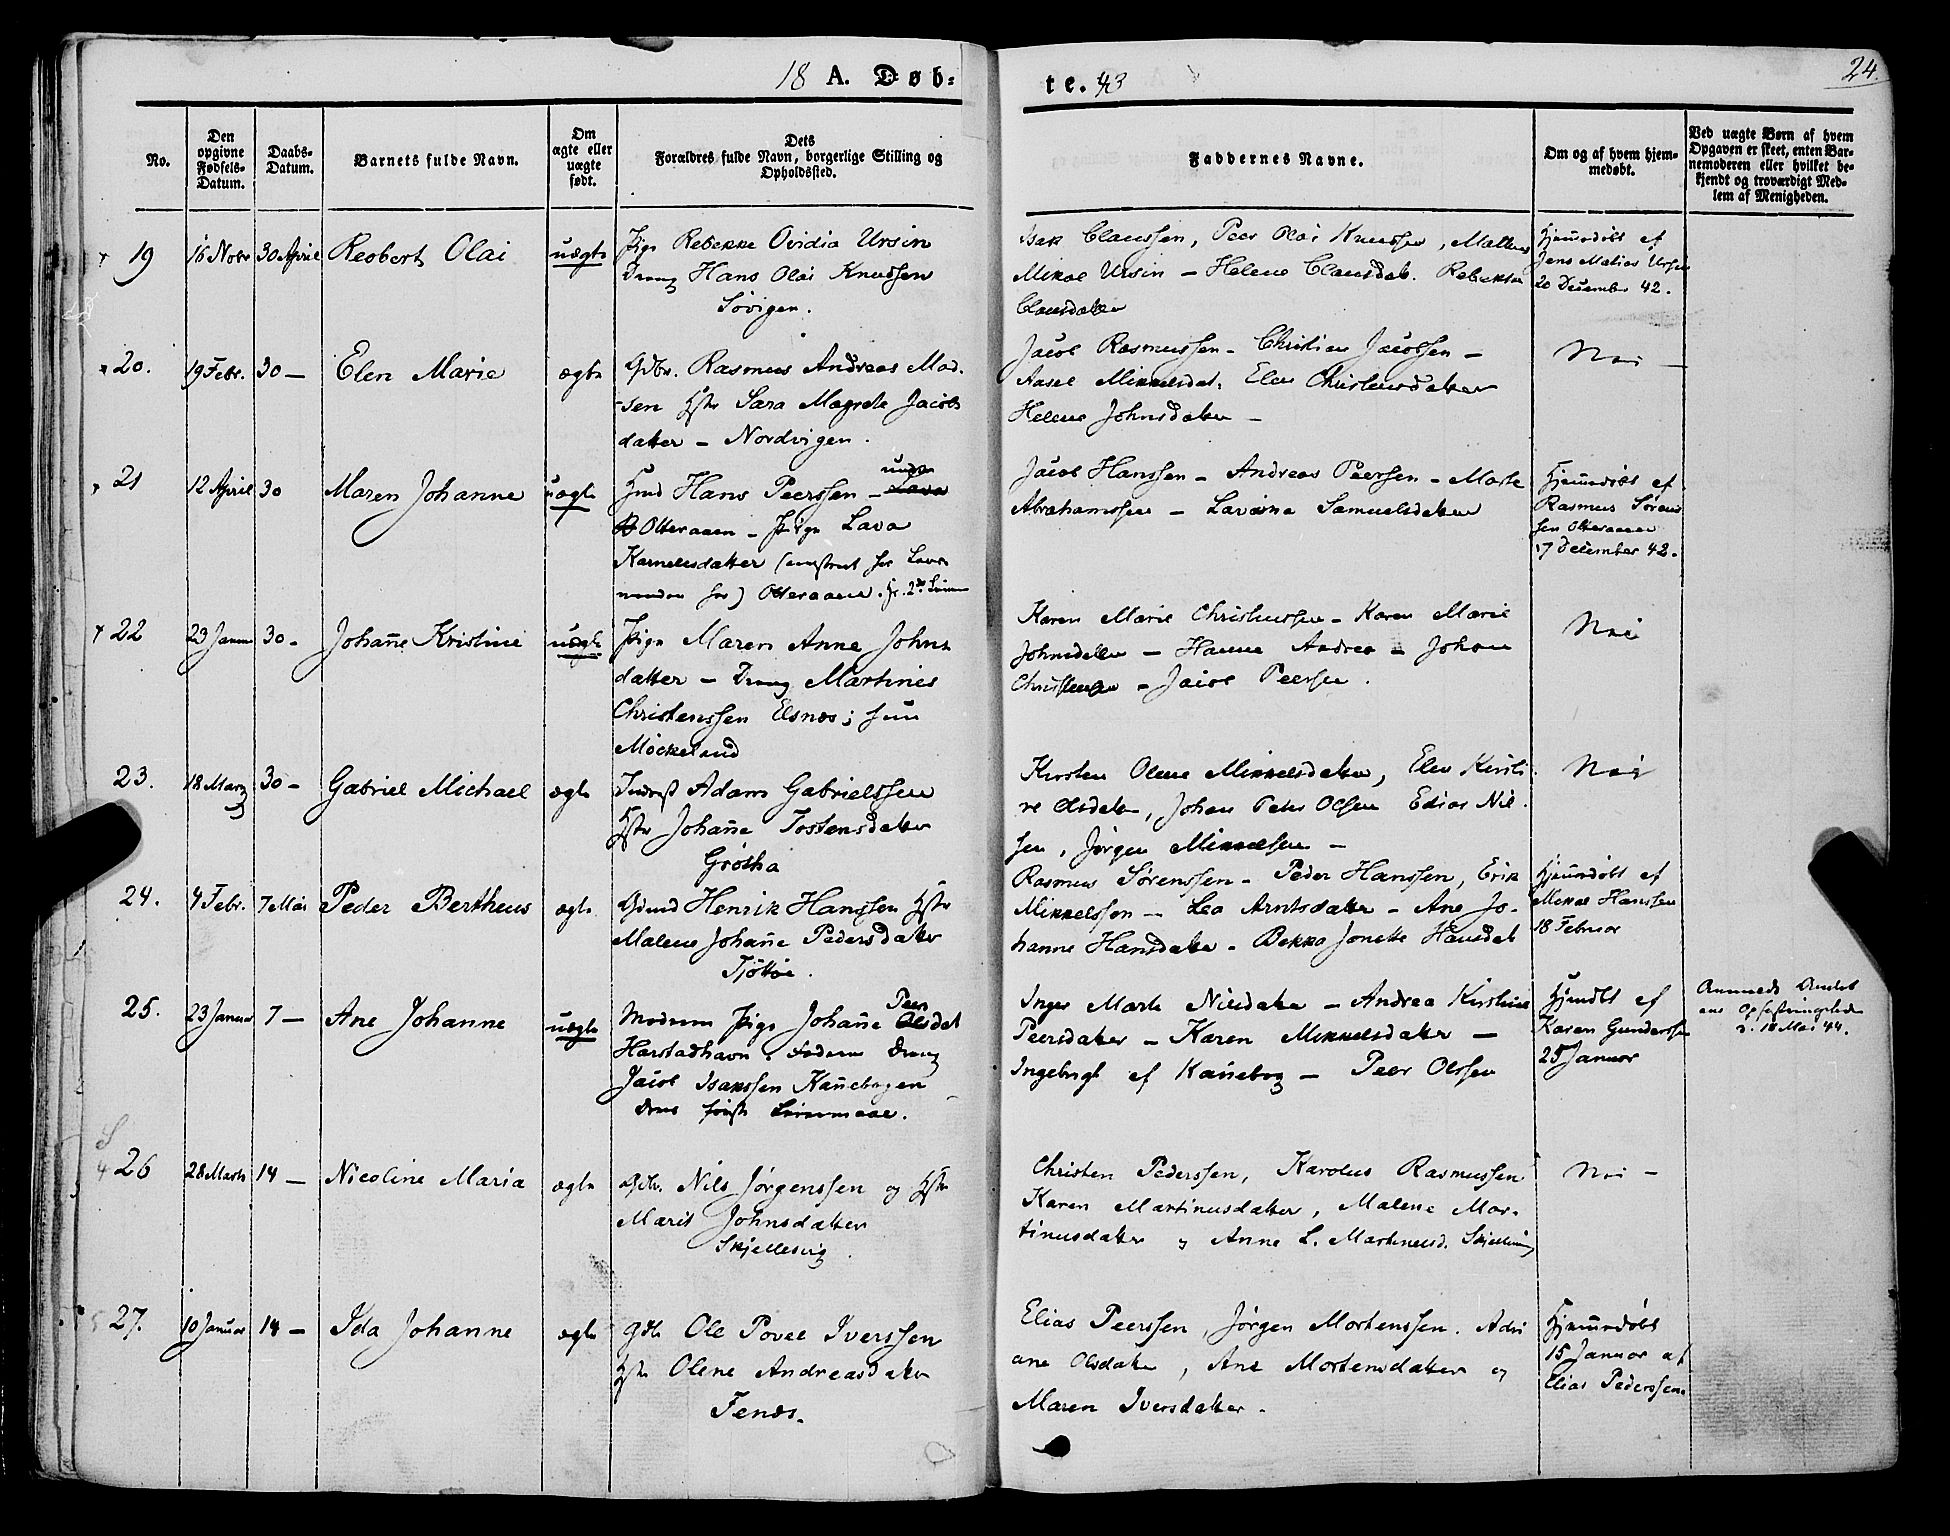 18 A. Døb-
te. 43
24.
No.
Den opgivne Fødsels-Datum.
Daabs-Datum.
Barnets fulde Navn.
Om ægte eller uægte født.
Dets Forældres fulde Navn, borgerlige Stilling og Opholdssted.
Faddernes Navne.
Om og af hvem hjemmedøbt.
Ved uægte Børn af hvem Opgaven er skeet, enten Barnemoderen eller hvilket bekjendt og troværdigt Medlem af Menigheden.
19 16 Novr 30 April Reobert Olai uægte
Pige Rebekke Ovidia Ursin
Dreng Hans Olai Knudsen
Isak Claussen, Peer Olai Knudsen,
Mikal Ursin – Helene Clausdat. Rebekka
Clausdatter
Hjemmedøbt af
Jens Matias Ursin
20 December 42.
20. 19 Febr. 30 – Elen Marie ægte
Gdbr. Rasmus Andreas Mad-
sen Hstr Sara Magrete Jacobs
datter – Nordvigen.
Jacob Rasmussen – Christian Jacobsen –
Aasel Mikkelsdat. Elen Christensdatter
Helene Johnsdatter –
Nei –
21 12 April 30 Maren Johanne uægte
Hmd Hans Peerssen –
Otteraaen – Pige Lava
Karnelesdatter
Otteraaen.
Jacob Hanssen – Andreas Peersen – Marte
Abrahamssen – Lavina Samuelsdatter
Hjemmedøbt af
Rasmus Søren
sen Otteraaen
17 December 42.
22 23 Janua 30 – Johañe Kristine uægte
Pige Maren Anne Johns
datter – Dreng Martines
Christenssen Elsnæs;
Møckeland
Karen Marie Christenssen – Karen Marie
Johnsdatter – Hanne Andrea – Johan
Christensen – Jacob Peersen.
Nei
23. 18 Marz 30 – Gabriel Michael ægte
Inderst Adam Gabrielssen
Hstr Johañe Tostensdatter
Grøtha
Kirsten Olene Mikkelsdatter, Elen Kirsti-
ne Olsdatter, Johan Peter Olsen Edias Nil-
sen, Jørgen Mikkelsen –
Nei
24. 4 Febr. 7 Mai Peder Bertheus ægte
Hmd Henrik Hanssen Hstr
Malene Johañe Pedersdatter
Tjøtta.
Rasmus Sørenssen – Peder Hanssen, Erik
Mikkelssøn – Lea Arntsdatter – Ane Jo-
hanne Hansdatter – Bekka Jonette Hansdat
Hjemmedøbt af
Mikal Hanssen
18 Februar
25. 23 Januar 7 – Ane Johanne uægte
Moderen Pige Johañe Peer Olsdat
Harstadhavn. Faderen Dreng
Jacob Isakssen Kañebogen
deres første Leiermaal.
Inger Marte Nilsdatter – Andrea Kirstine
Peersdatter – Karen Mikkelsdatter –
Ingebrigt af Kañebog – Peer Olssen
Hjmdbt af
Karen Gunderssen
25 Januar
18 Mai 44.
26 28 Marts 14 – Nicoline Maria ægte
Gdbr. Nils Jørgenssen og Hstr
Marit Johnsdatter
Skjellesvig.
Christen Pederssen, Karolus Rasmussen
Karen Martinusdatter, Malene Mar-
tinusdatter og Anne L. Martinusd. Skjellesvig
Nei –
27. 10 Januar 14 – Ida Johanne ægte
Gdbr Ole Povel Iverssen
Hstr Olene Andreasdatter
Fenæs.
Elias Peerssen, Jørgen Mortenssen. Adri
ane Olsdatter, Ane Mortensdatter og
Maren Iversdatter.
Hjemmedøbt
15 Januar af
Elias Pederssen